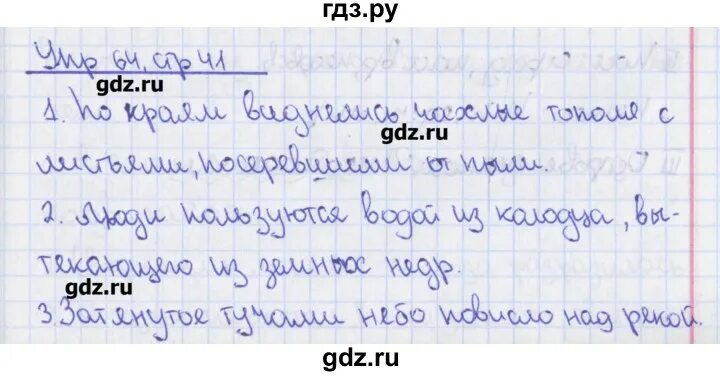 гдз.ру
Упр 64, стр 41
gdz.ru
1. По краям виднелись чахлые тополя с
gdz.ru
листьями, посеревшими от пыли.
gdz.ru
2. Люди пользуются водой из колодца, вы-
текающего из земных недр.
gdz.ru
3. Затянутое тучами небо повисло над рекой.
gdz.ru